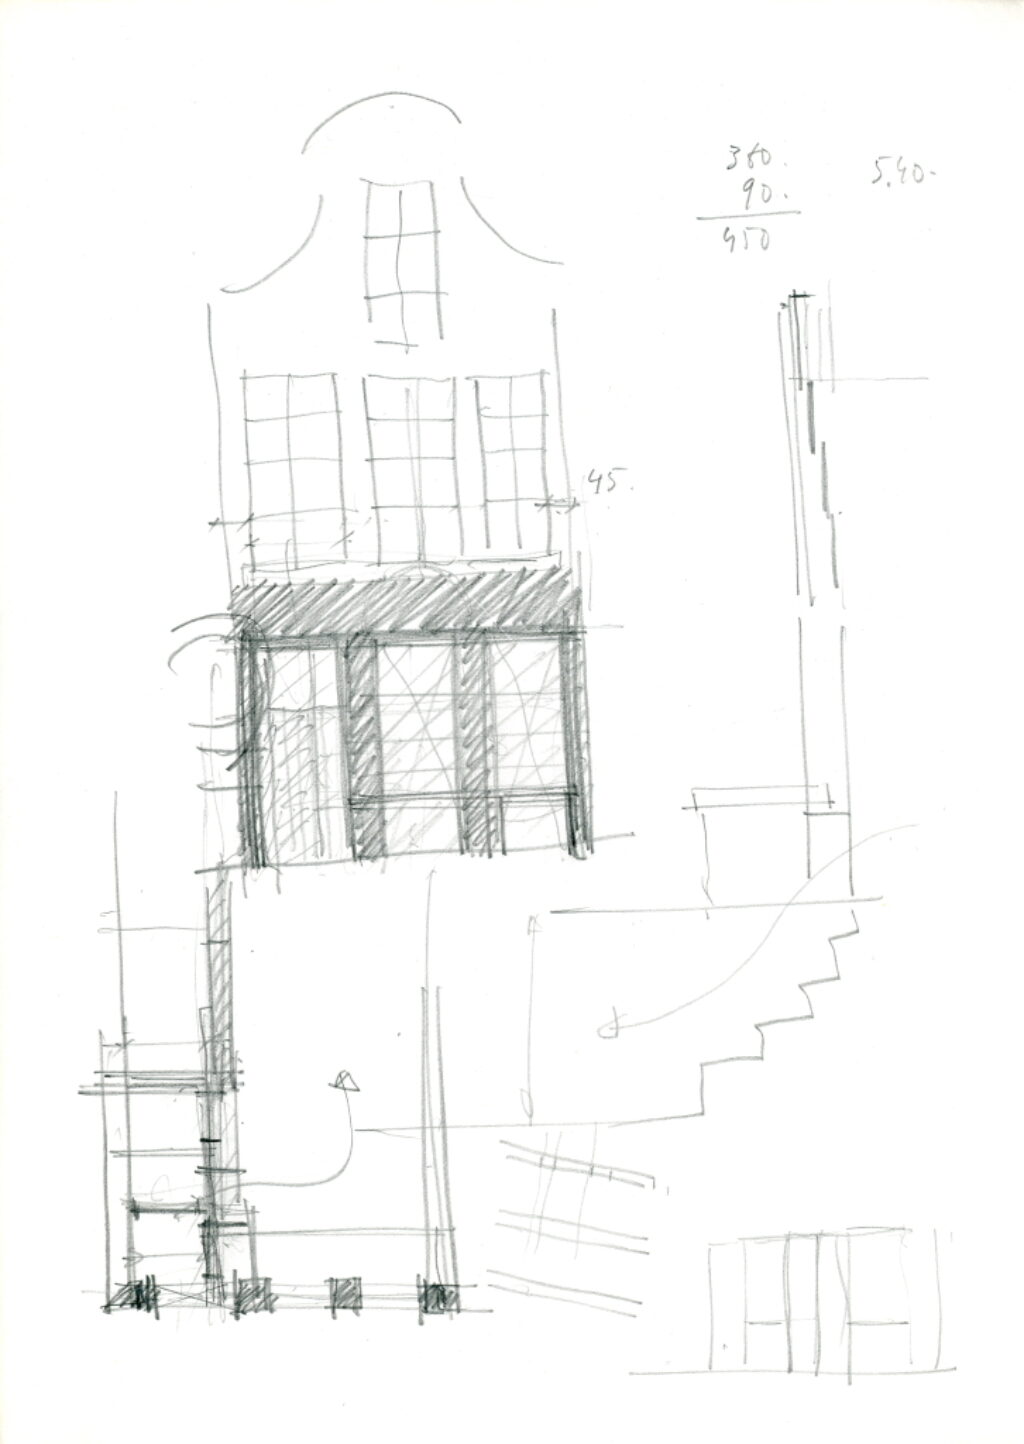 360.
90.
450
5.40.
45.